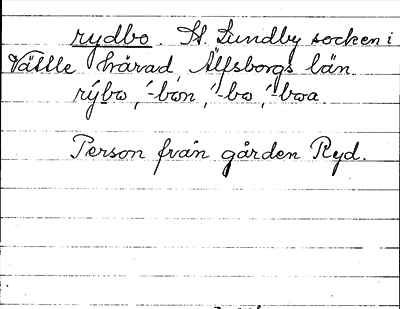 rydbo. St. Lundby socken i
Vättle härad, Älfsborgs län.
rýbo, ´-bon, ´-bo, ´-boa.
Person från gården Ryd.